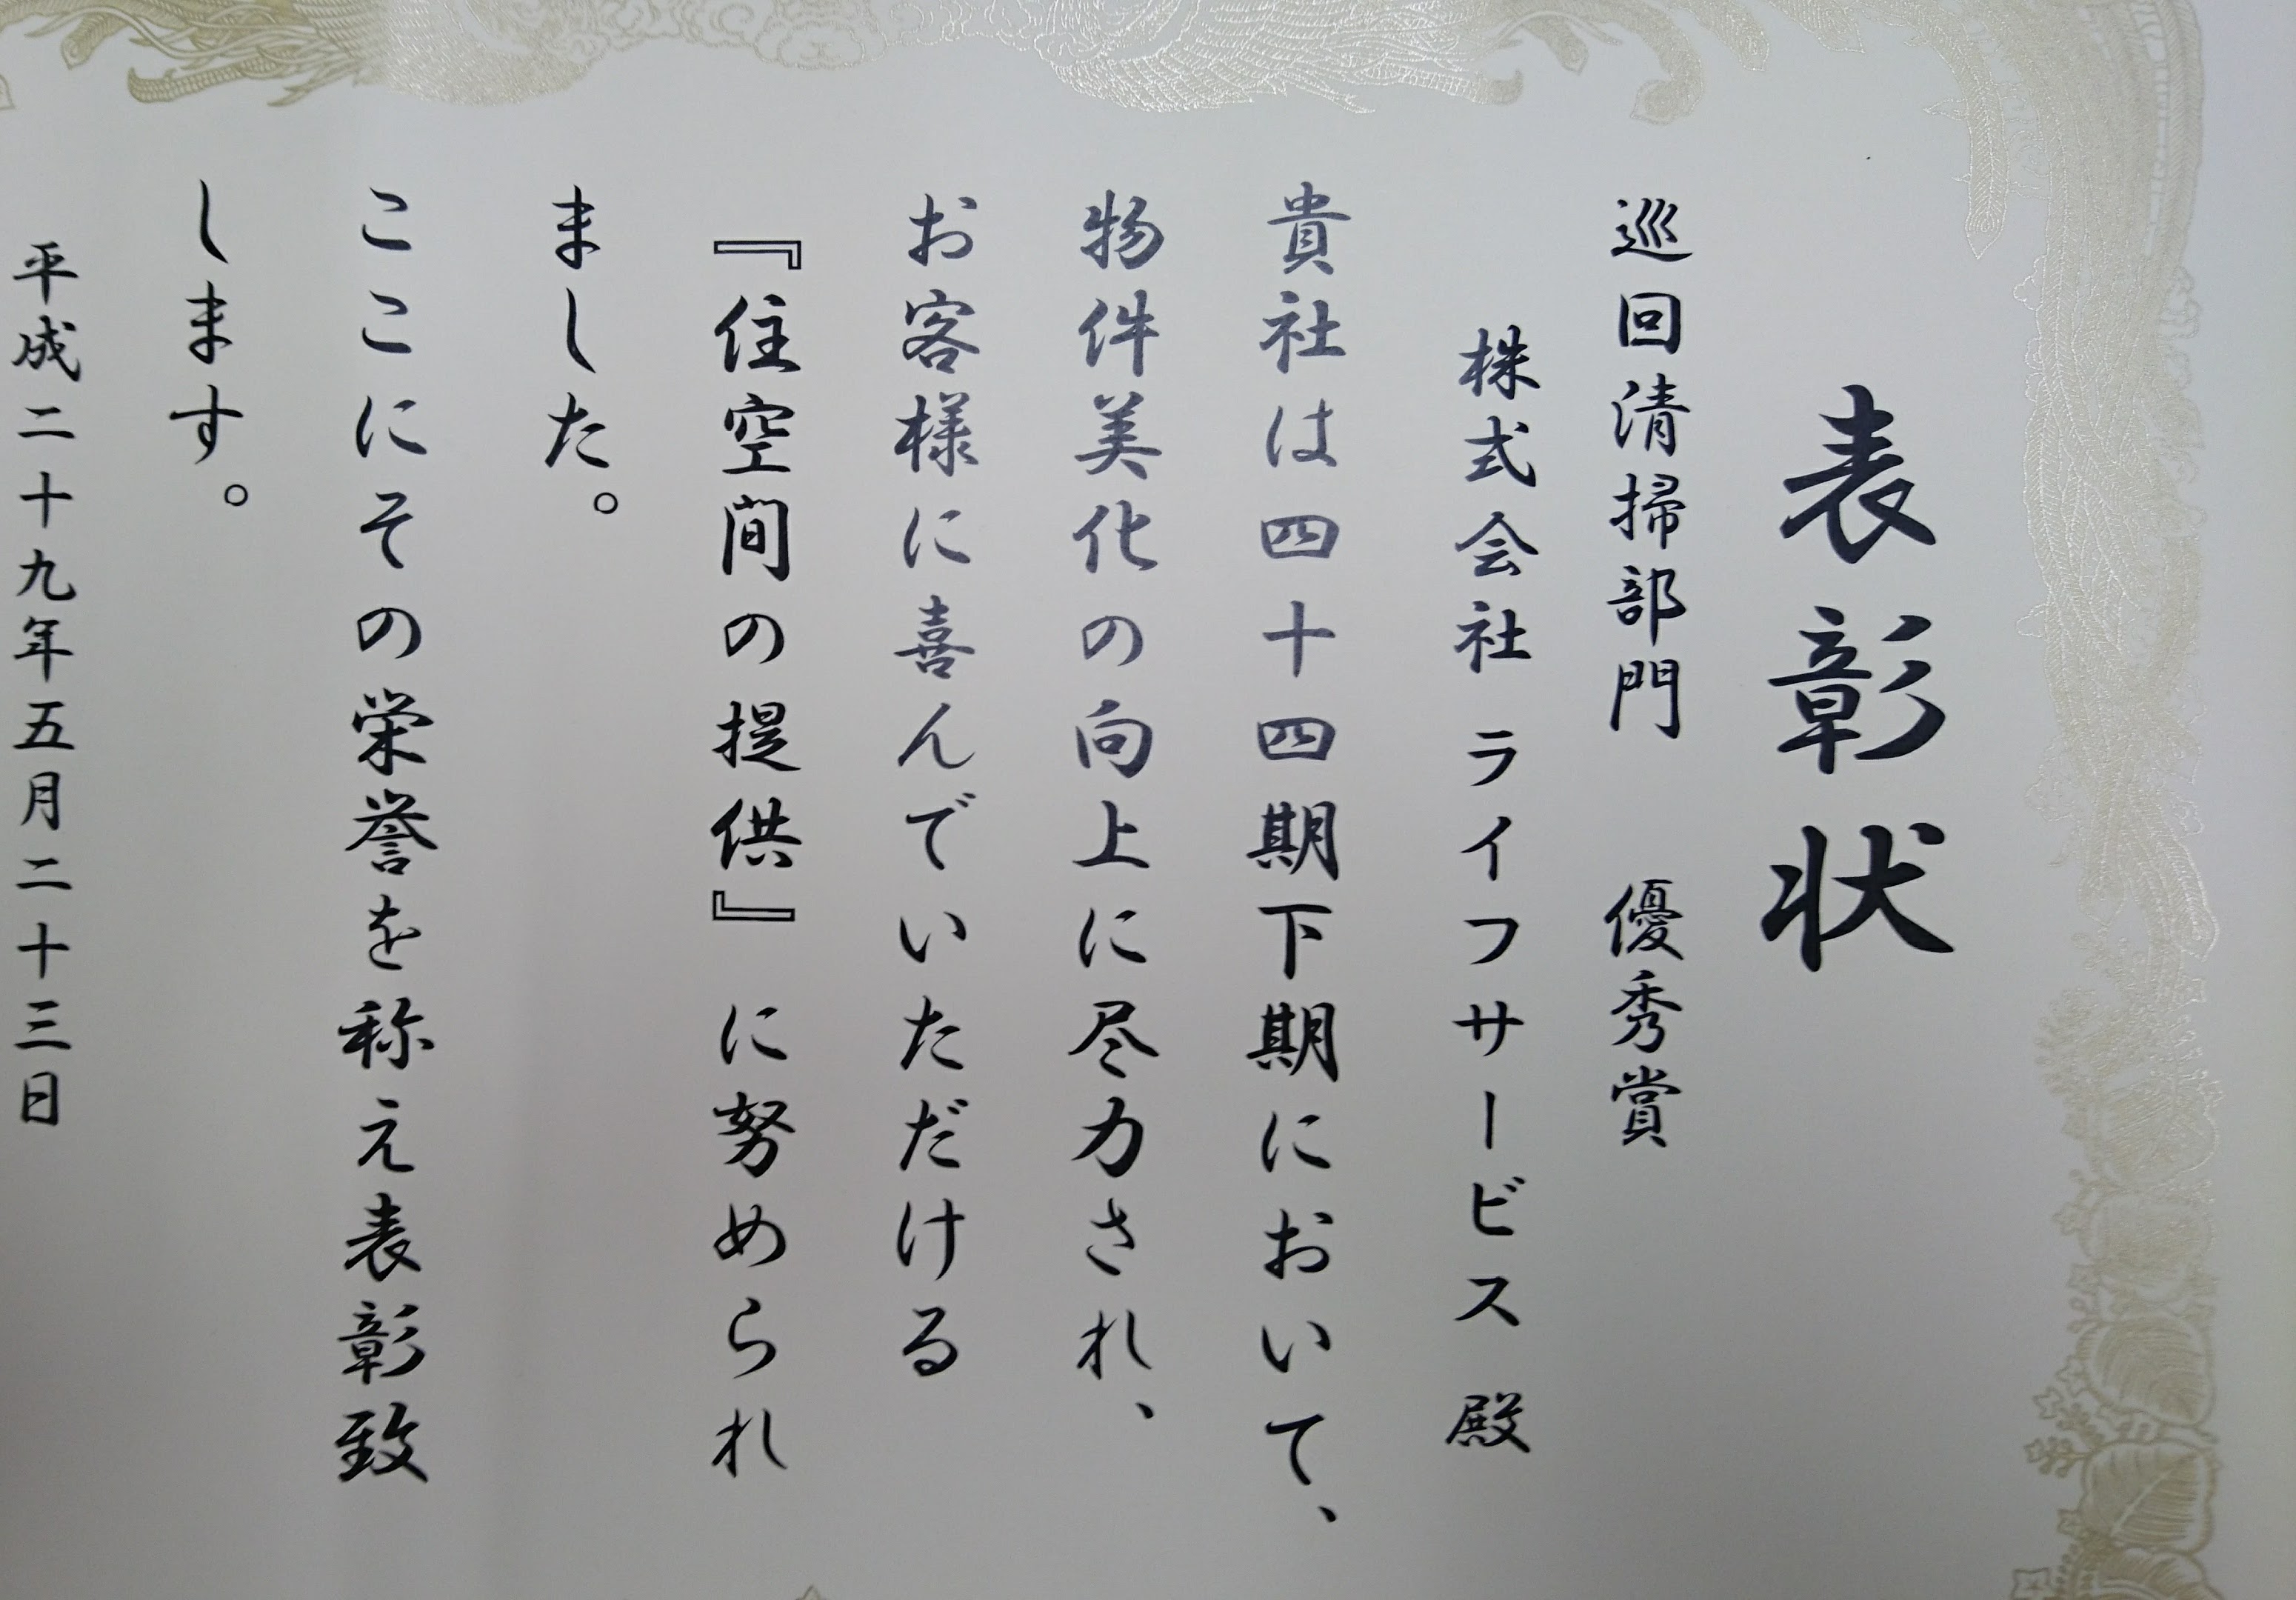 表彰状
巡回清掃部門 優秀賞
株式会社 ライフサービス 殿
貴社は四十四期下期において、
物件美化の向上に尽力され、
お客様に喜んでいただける
『住空間の提供』に努められ
ました。
ここにその栄誉を称え表彰致
します。
平成二十九年五月二十三日